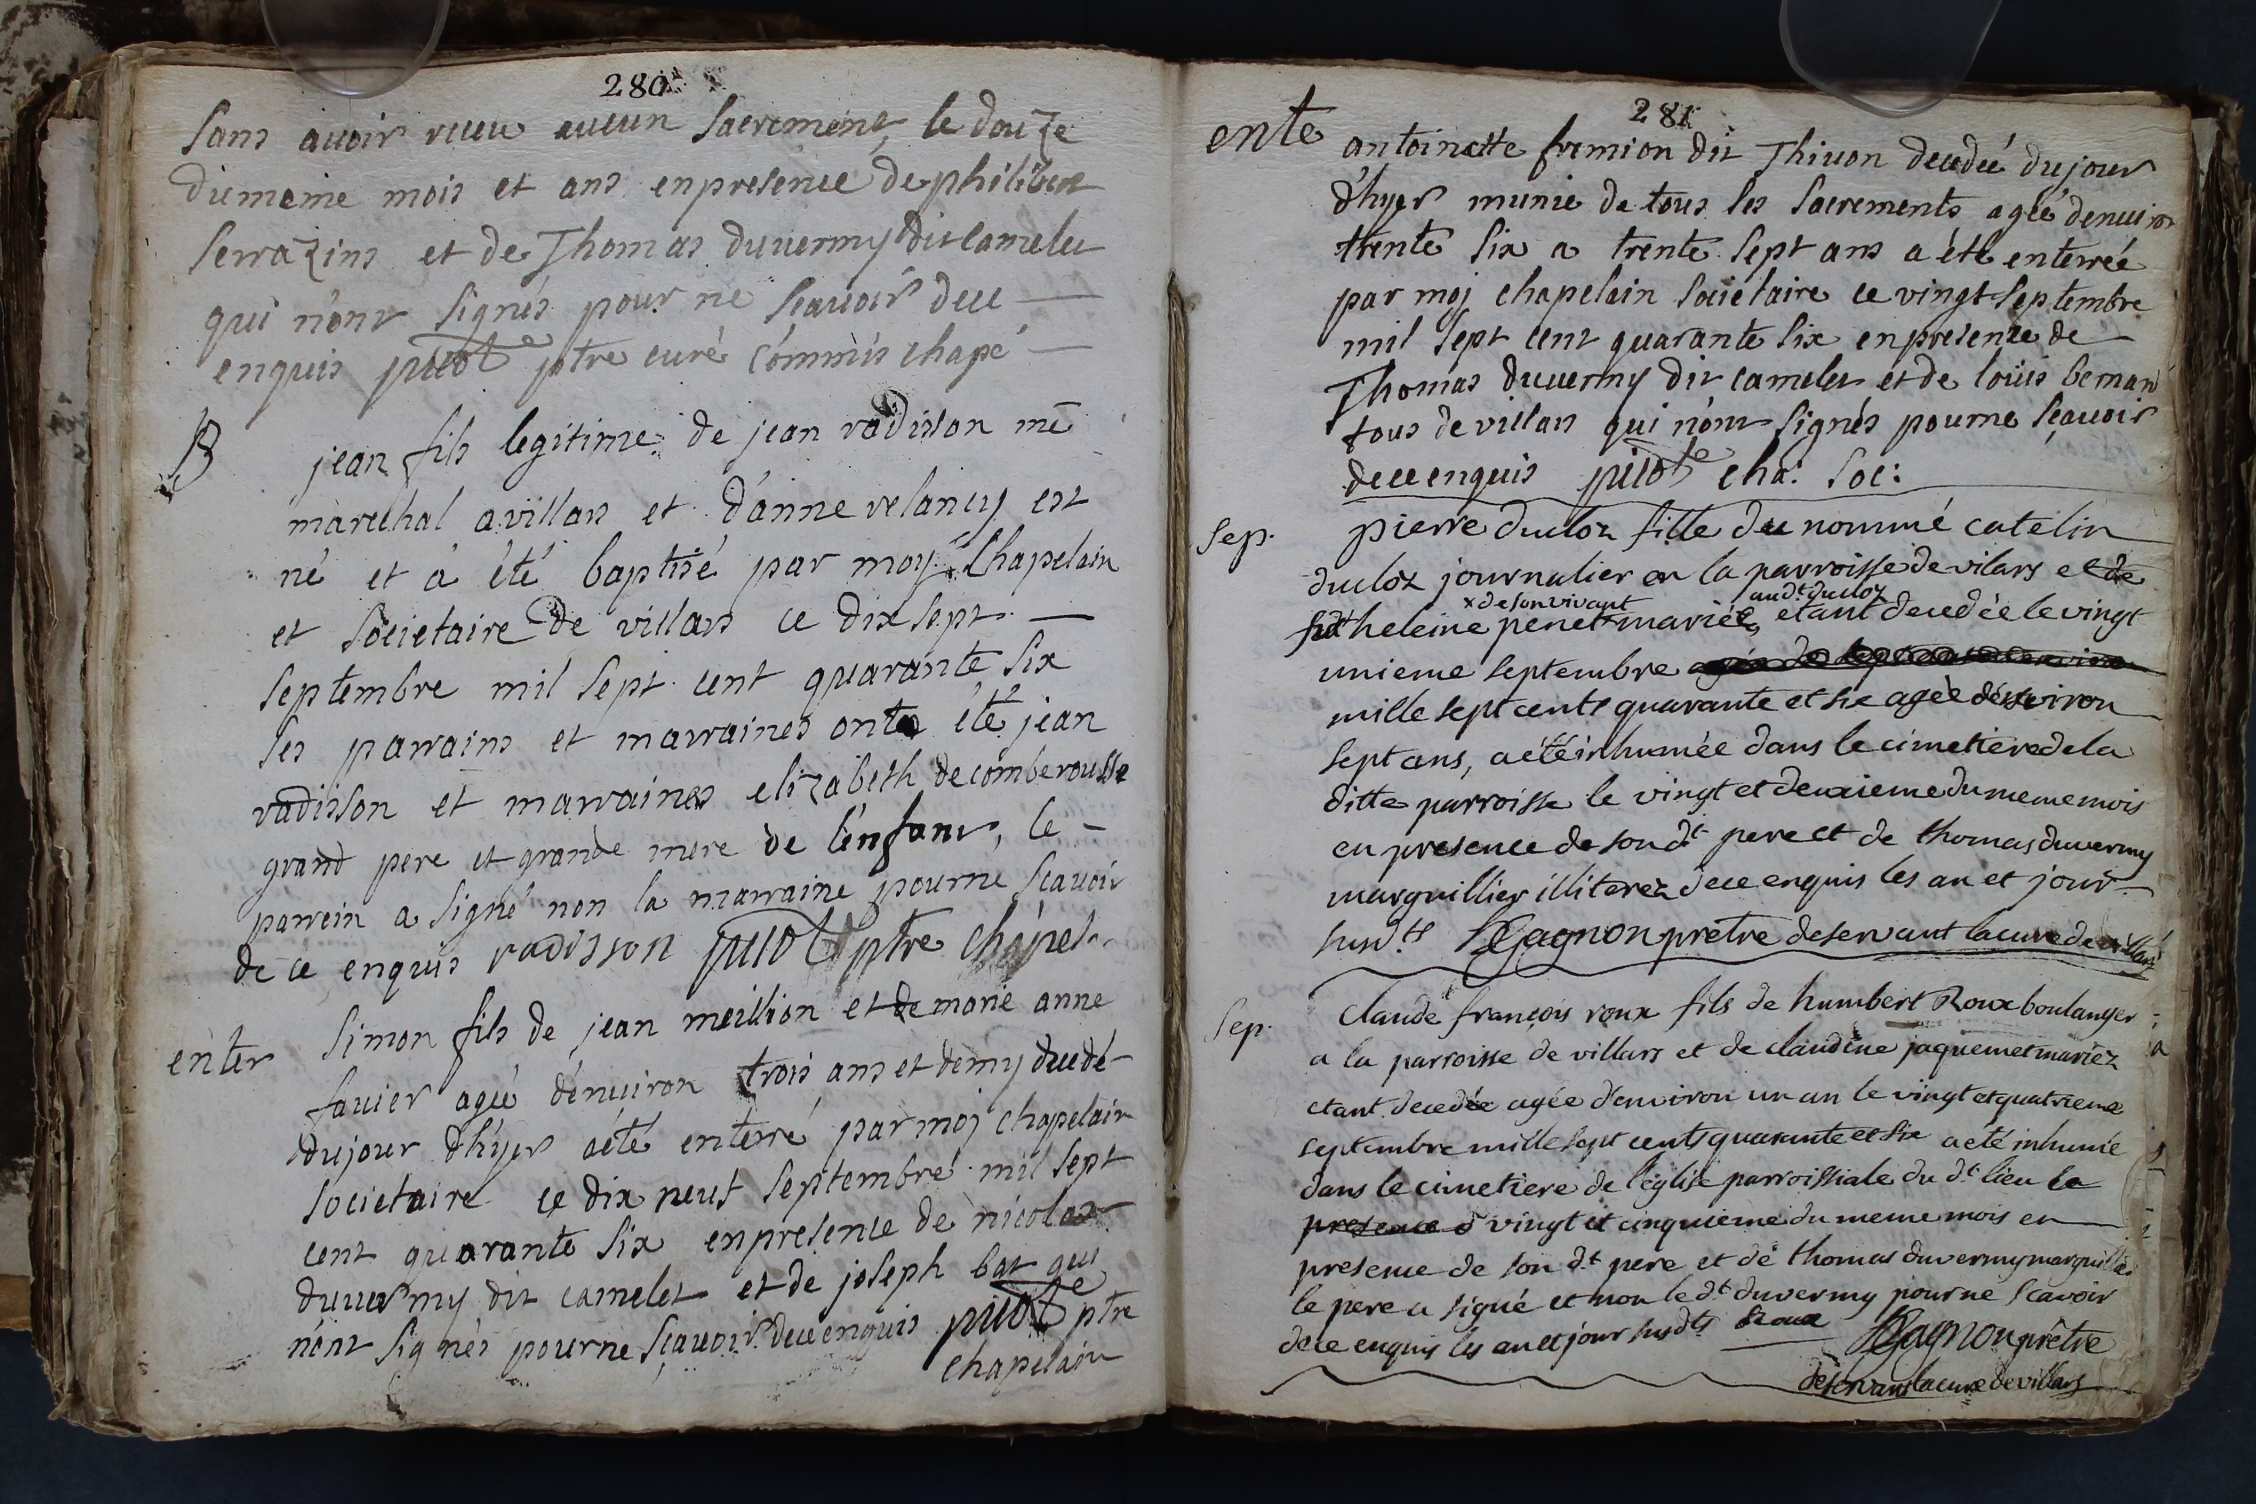 280
sans auoir receu aucun sacrement, le douze
du meme mois et ans en presence de philibert
serrazins et de Thomas duuermy dit camelet
qui n'ont signés pour ne scauoir de ce
enquis picot ptre curé commis chapé
B
jean fils legitime de jean radisson me
marechal a villars et d'anne velancy est
né et a été baptisé par moy chapelain
et societaire de villars ce dix sept
septembre mil sept cent quarante six
ses parrains et marraines ont été jean
radisson et marraines elizabeth decomberousse
grand pere et grande mere de l'enfant, le
parrein a signé non la marraine pour ne scauoir
de ce enquis radisson picot ptre chapel.
enter
simon fils de jean meillion et de marie anne
fauier agée d'enuiron trois ans et demy decedé
du jour d'hyer a été enterré par moj chapelain
societaire ce dix neuf septembre mil sept
cent quarante six en presence de nicolas
duuermy dit camelet et de joseph bat qui
n'ont signés pour ne sçauoir de ce enquis picot ptre
chapelain
281
ente
antoinette fremion dit Thiuon decedeé du jour
d'hyer munie de tous les sacrements agéé denuiron
trente six a trente sept ans a été enterrée
par moj chapelain societaire ce vingt septembre
mil sept cent quarante six en presence de
Thomas duuermy dit camelet et de loüis bernard
tous de villars qui n'ont signés pour ne sçauoir
de ce enquis picot cha: soc:
Sep.
pierre ducloz fille du nommé catelin
ducloz journalier en la parroisse de vilars et de
heleine penet mariée, etant decedée le vingt
x de son vivant
au dt ducloz
unieme septembre
mille sept cents quarante et six agée d'environ
sept ans, a été inhumée dans le cimetiere de la
ditte parroisse le vingt et deuxieme du meme mois
en presence de son dt pere et de thomas duvermy
marguillier illiterez de ce enquis les an et jour
susdts Gagnon prêtre deservant la cure de villars
Sep.
Claude françois roux fils de humbert Roux boulanger
a la parroisse de villars et de claudine jaquemet mariez
etant decedée agée d'environ un an le vingt et quatrieme
septembre mille sept cents quarante et six a eté inhumée
dans le cimetiere de l'église parroissiale du dt lieu le
presence d vingt et cinquieme du meme mois en
presence de son dt pere et de thomas duvermy marguillier
le pere a signé et non le dt duvermy pour ne scavoir
de ce enquis les an et jour susdts Roux Gagnon prêtre
deservant la cure de villars